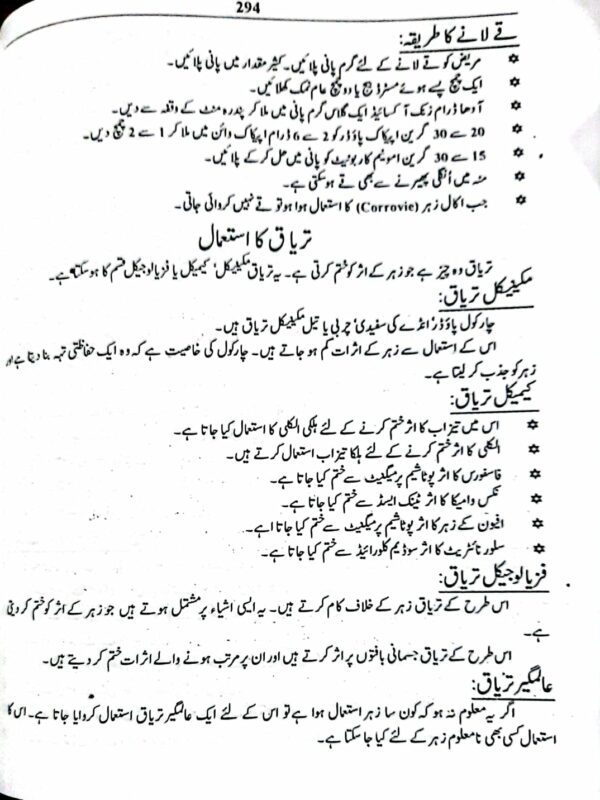 294
قے لانے کا طریقہ:
✡ مریض کو قے لانے کے لئے گرم پانی پلائیں۔ کثیر مقدار میں پانی پلائیں۔
✡ ایک چمچ پسے ہوئے مسٹرڈ بیج یا دو چمچ عام نمک کھلائیں۔
✡ آدھا ڈرام زنک آکسائیڈ ایک گلاس گرم پانی میں ملا کر پندرہ منٹ کے وقفہ سے دیں۔
✡ 20 سے 30 گرین اپیکاک پاؤڈر کو 2 سے 6 ڈرام اپیکاک وائن میں ملا کر 1 سے 2 چمچ دیں۔
✡ 15 سے 30 گرین امونیم کاربونیٹ کو پانی میں حل کر کے پلائیں۔
✡ منہ میں اُنگلی پھیرنے سے بھی قے ہو سکتی ہے۔
✡ جب اکال زہر (Corrovie) کا استعمال ہوا ہو تو قے نہیں کروائی جاتی۔
تریاق کا استعمال
تریاق وہ چیز ہے جو زہر کے اثر کو ختم کرتی ہے۔ یہ تریاق مکینیکل، کیمیکل یا فزیالوجیکل قسم کا ہو سکتا ہے۔
مکینیکل تریاق:
چارکول پاؤڈر، انڈے کی سفیدی، چربی یا تیل مکینیکل تریاق ہیں۔
اس کے استعمال سے زہر کے اثرات کم ہو جاتے ہیں۔ چارکول کی خاصیت ہے کہ وہ ایک حفاظتی تہہ بنا دیتا ہے اور
زہر کو جذب کر لیتا ہے۔
کیمیکل تریاق:
✡ اس میں تیزاب کا اثر ختم کرنے کے لئے ہلکی الکلی کا استعمال کیا جاتا ہے۔
✡ الکلی کا اثر ختم کرنے کے لئے ہلکا تیزاب استعمال کرتے ہیں۔
✡ فاسفورس کا اثر پوٹاشیم پرمیگنیٹ سے ختم کیا جاتا ہے۔
✡ نکس وامیکا کا اثر ٹینک ایسڈ سے ختم کیا جاتا ہے۔
✡ افیون کے زہر کا اثر پوٹاشیم پرمیگنیٹ سے ختم کیا جاتا اہے۔
✡ سلور نائٹریٹ کا اثر سوڈیم کلورائیڈ سے ختم کیا جاتا ہے۔
فزیالوجیکل تریاق:
اس طرح کے تریاق زہر کے خلاف کام کرتے ہیں۔ یہ ایسی اشیاء پر مشتمل ہوتے ہیں جو زہر کے اثر کو ختم کر دیتی
ہے۔
اس طرح کے تریاق جسمانی بافتوں پر اثر کرتے ہیں اور ان پر مرتب ہونے والے اثرات ختم کر دیتے ہیں۔
عالمگیر تریاق:
اگر یہ معلوم نہ ہو کہ کون سا زہر استعمال ہوا ہے تو اس کے لئے ایک عالمگیر تریاق استعمال کروایا جاتا ہے۔ اس کا
استعمال کسی بھی نامعلوم زہر کے لئے کیا جا سکتا ہے۔